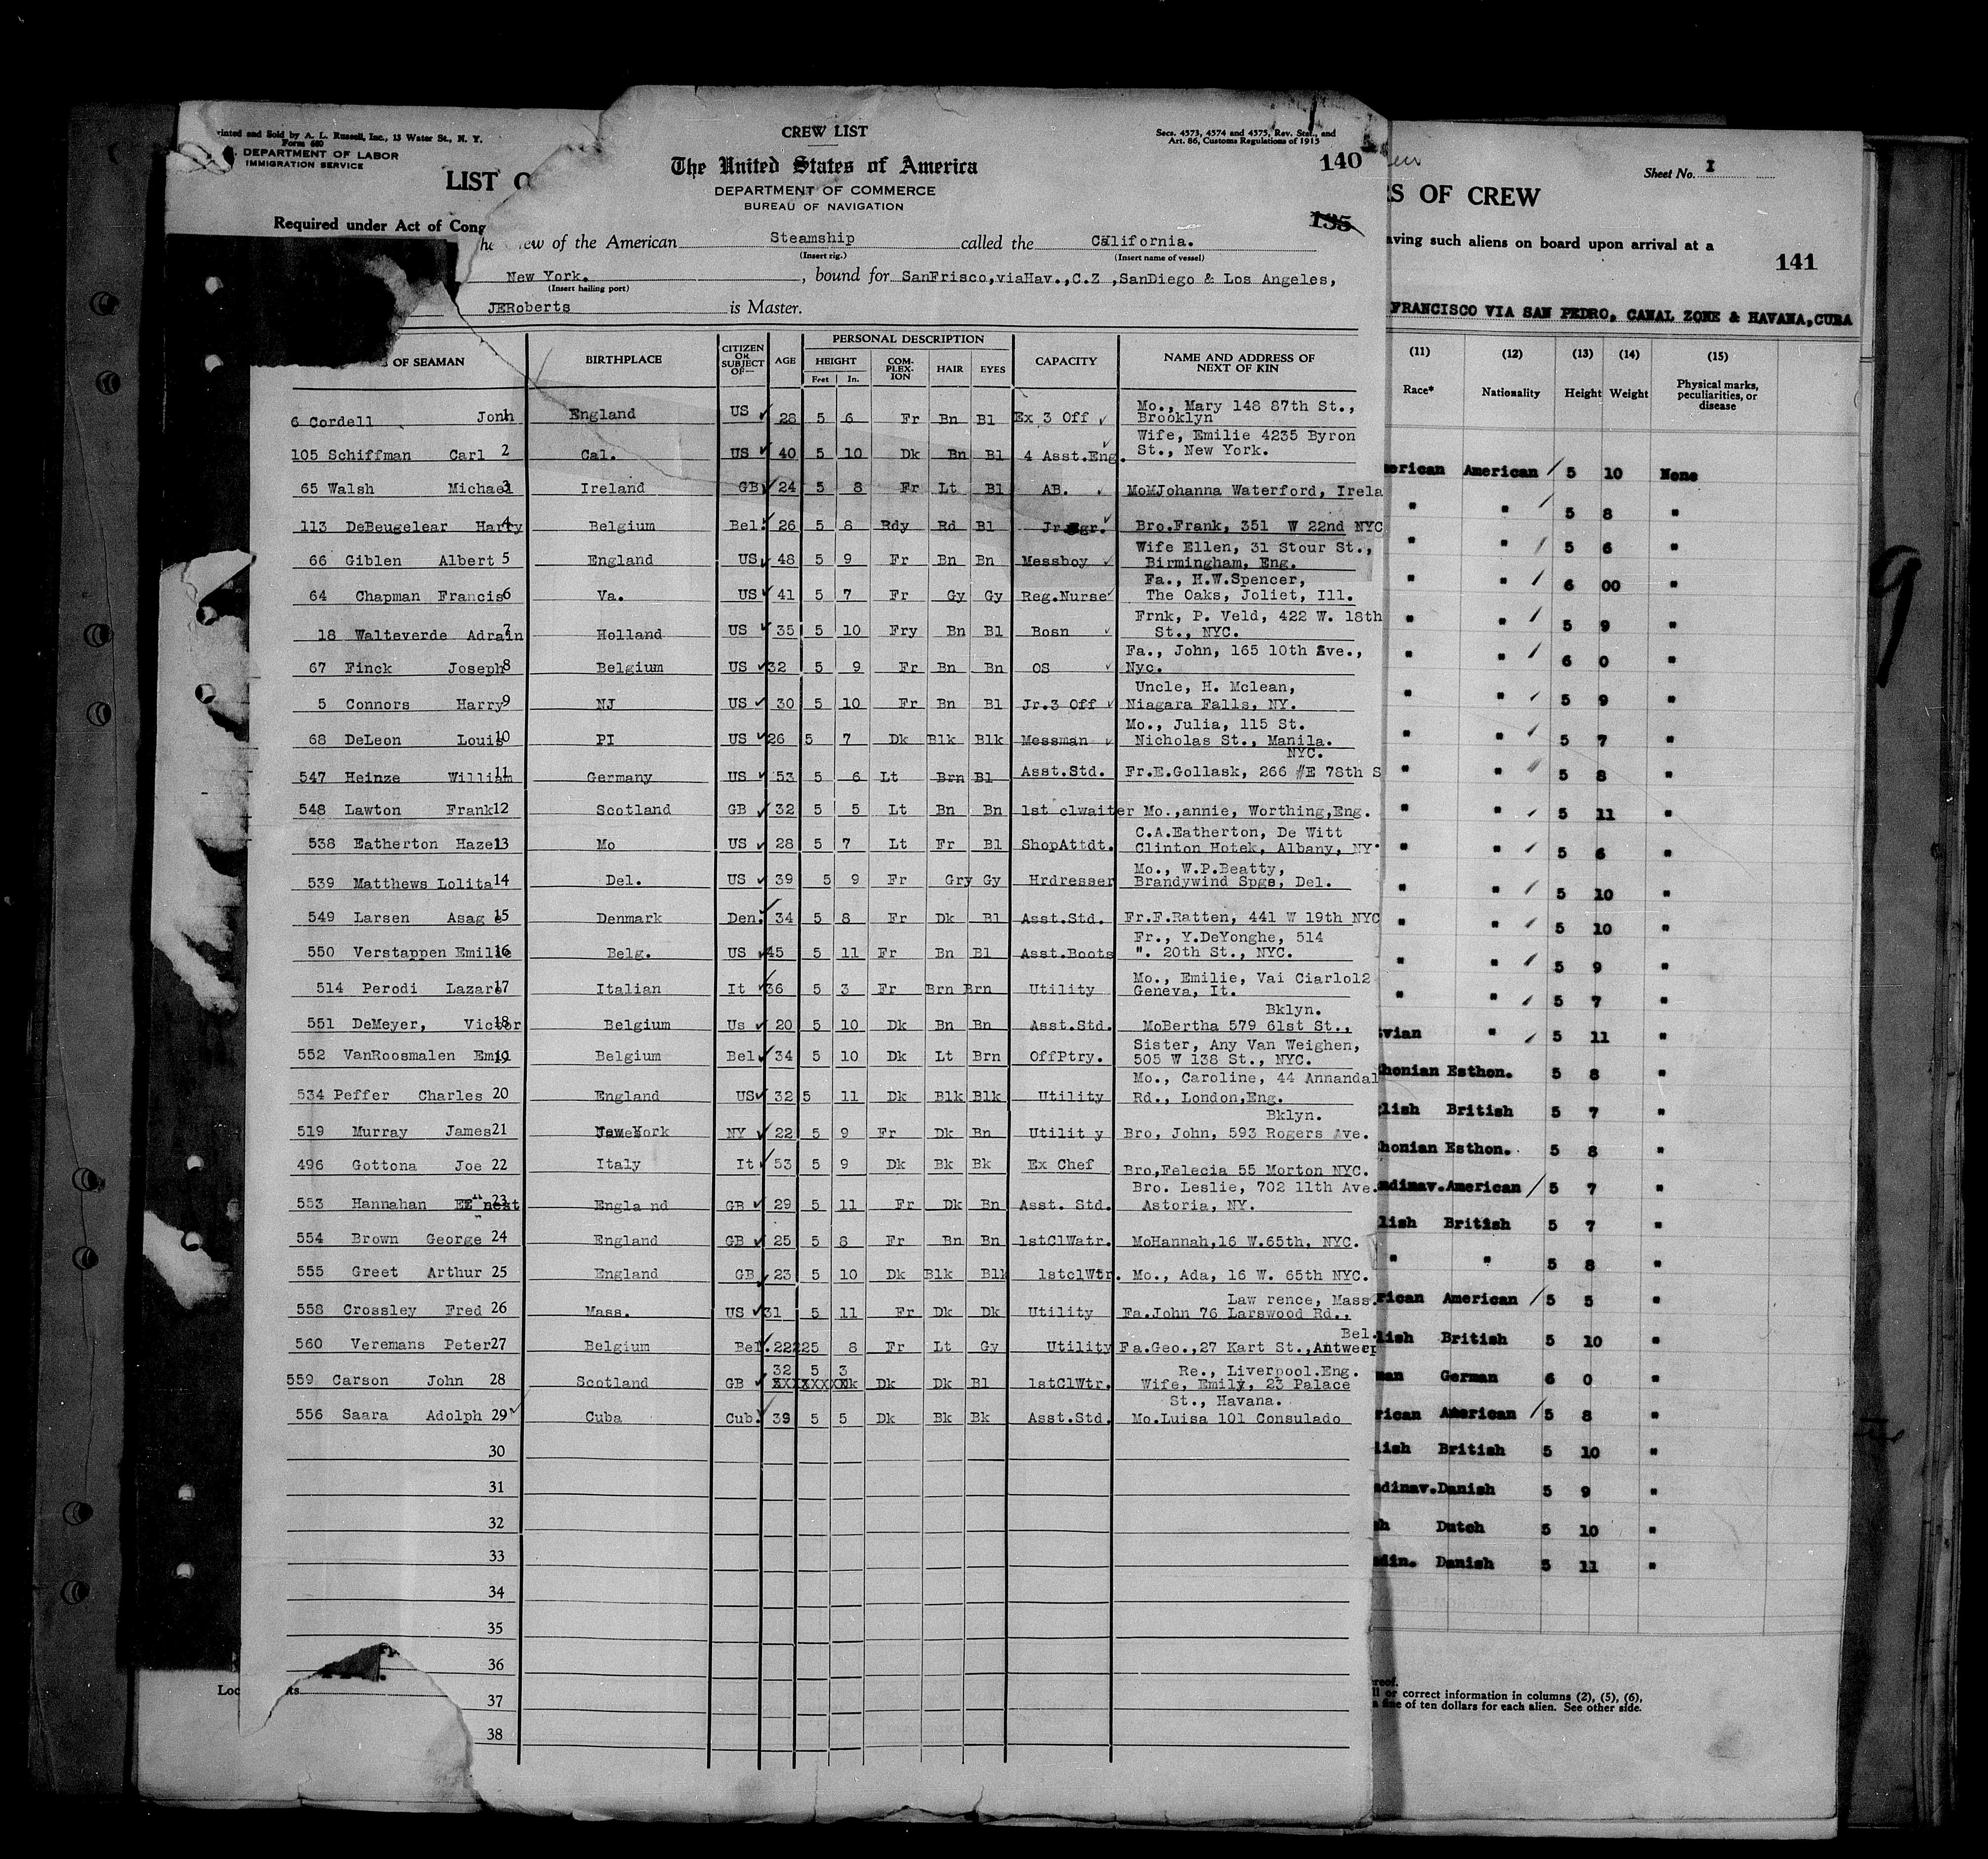 rinted and Sold by A. L. Russell, Inc., 13 Water St., N. Y.
Form 680
DEPARTMENT OF LABOR
IMMIGRATION SERVICE
LIST O
Required under Act of Cong
CREW LIST
The United States of America
DEPARTMENT OF COMMERCE
BUREAU OF NAVIGATION
Secs. 4573, 4574 and 4575, Rev. Stat., and
Art. 86, Customs Regulations of 1915
140
135
ew of the American Steamship called the California.
(Insert rig.) (Insert name of vessel)
New York. , bound for SanFrisco,viaHav.,C.Z ,SanDiego & Los Angeles,
(Insert hailing port)
JERoberts is Master.
OF SEAMAN BIRTHPLACE CITIZEN OR SUBJECT OF— AGE PERSONAL DESCRIPTION HEIGHT Feet In. COM-PLEX-ION HAIR EYES CAPACITY NAME AND ADDRESS OF NEXT OF KIN
6 Cordell Jonh 1 England US 28 5 6 Fr Bn Bl Ex 3 Off Mo., Mary 148 87th St., Brooklyn
105 Schiffman Carl 2 Cal. US 40 5 10 Dk Bn Bl 4 Asst.Eng. Wife, Emilie 4235 Byron St., New York.
65 Walsh Michael 3 Ireland GB 24 5 8 Fr Lt Bl AB. MoMJohanna Waterford, Irela
113 DeBeugelear Harry 4 Belgium Bel. 26 5 8 Rdy Rd Bl Bro.Frank, 351 W 22nd NYC
66 Giblen Albert 5 England US 48 5 9 Fr Bn Bn Messboy Wife Ellen, 31 Stour St., Birmingham, Eng.
64 Chapman Francis 6 Va. US 41 5 7 Fr Gy Gy Reg.Nurse Fa., H.W.Spencer, The Oaks, Joliet, Ill.
18 Walteverde Adrain 7 Holland US 35 5 10 Fry Bn Bl Bosn Frnk, P. Veld, 422 W. 18th St., NYC.
67 Finck Joseph 8 Belgium US 32 5 9 Fr Bn Bn OS Fa., John, 165 10th Ave., Nyc.
5 Connors Harry 9 NJ US 30 5 10 Fr Bn Bl Jr.3 Off Uncle, H. Mclean, Niagara Falls, NY.
68 DeLeon Louis 10 PI US 26 5 7 Dk Blk Blk Messman Mo., Julia, 115 St. Nicholas St., Manila.
547 Heinze William 11 Germany US 53 5 6 Lt Brn Bl Asst.Std. NYC. Fr.E.Gollask, 266 #E 78th S
548 Lawton Frank 12 Scotland GB 32 5 5 Lt Bn Bn 1st clwaiter Mo.,annie, Worthing,Eng.
538 Eatherton Hazel 13 Mo US 28 5 7 Lt Fr Bl ShopAttdt. C.A.Eatherton, De Witt Clinton Hotek, Albany, NY
539 Matthews Lolita 14 Del. US 39 5 9 Fr Gry Gy Hrdresser Mo., W.P.Beatty, Brandywind Spgs, Del.
549 Larsen Asag e 15 Denmark Den. 34 5 8 Fr Dk Bl Asst.Std. Fr.F.Ratten, 441 W 19th NYC
550 Verstappen Emilie 16 Belg. US 45 5 11 Fr Bn Bl Asst.Boots Fr., Y.DeYonghe, 514 ". 20th St., NYC.
514 Perodi Lazare 17 Italian It 36 5 3 Fr Brn Brn Utility Mo., Emilie, Vai Ciarlo12 Geneva, It.
551 DeMeyer, Victor 18 Belgium Us 20 5 10 Dk Bn Bn Asst.Std. Bklyn. MoBertha 579 61st St.,
552 VanRoosmalen Emil 19 Belgium Bel 34 5 10 Dk Lt Brn OffPtry. Sister, Any Van Weighen, 505 W 138 St., NYC.
534 Peffer Charles 20 England US 32 5 11 Dk Blk Blk Utility Mo., Caroline, 44 Annandal Rd., London,Eng.
519 Murray James 21 New York NY 22 5 9 Fr Dk Bn Utilit y Bklyn. Bro, John, 593 Rogers Ave.
496 Gottona Joe 22 Italy It 53 5 9 Dk Bk Bk Ex Chef Bro,Felecia 55 Morton NYC.
553 Hannahan 23 Engla nd GB 29 5 11 Fr Dk Bn Asst. Std. Bro. Leslie, 702 11th Ave. Astoria, NY.
554 Brown George 24 England GB 25 5 8 Fr Bn Bn 1stClWatr. MoHannah,16 W.65th, NYC.
555 Greet Arthur 25 England GB 23 5 10 Dk Blk Blk 1stclWtr. Mo., Ada, 16 W. 65th NYC.
558 Crossley Fred 26 Mass. US 31 5 11 Fr Dk Dk Utility Law rence, Mass. Fa.John 76 Larswood Rd.,
560 Veremans Peter 27 Belgium Bel. 22225 8 Fr Lt Gy Utility Bel. Fa.Geo.,27 Kart St.,Antwerp
559 Carson John 28 Scotland GB 32 5 3 Dk Dk Bl 1stClWtr. Re., Liverpool.Eng. Wife, Emily, 23 Palace
556 Saara Adolph 29 Cuba Cub. 39 5 5 Dk Bk Bk Asst.Std. St., Havana. Mo.Luisa 101 Consulado
30
31
32
33
34
35
36
37
38
Sheet No. I
RS OF CREW
aving such aliens on board upon arrival at a
141
FRANCISCO VIA SAN PEDRO, CANAL ZONE & HAVANA,CUBA
(11) (12) (13) (14) (15)
Race* Nationality Height Weight Physical marks, peculiarities, or disease
erican American 5 10 None
" " 5 8 "
" " 5 6 "
" " 6 00 "
" " 5 9 "
" " 6 0 "
" " 5 9 "
" " 5 7 "
" " 5 8 "
" " 5 11 "
" " 5 6 "
" " 5 10 "
" " 5 10 "
" " 5 9 "
" " 5 7 "
vian " 5 11 "
honian Esthon. 5 8 "
lish British 5 7 "
honian Esthon. 5 8 "
dinav. American 5 7 "
lish British 5 7 "
" " 5 8 "
rican American 5 5 "
lish British 5 10 "
man German 6 0 "
rican American 5 8 "
lish British 5 10 "
dinav. Danish 5 9 "
h Dutch 5 10 "
din. Danish 5 11 "
reof.
ll or correct information in columns (2), (5), (6),
a fine of ten dollars for each alien. See other side.
9